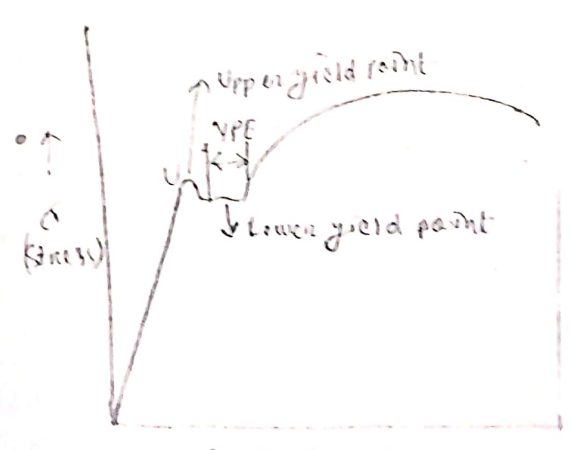 Upper yield point
YPE
U
Lower yield point
σ
(stress)